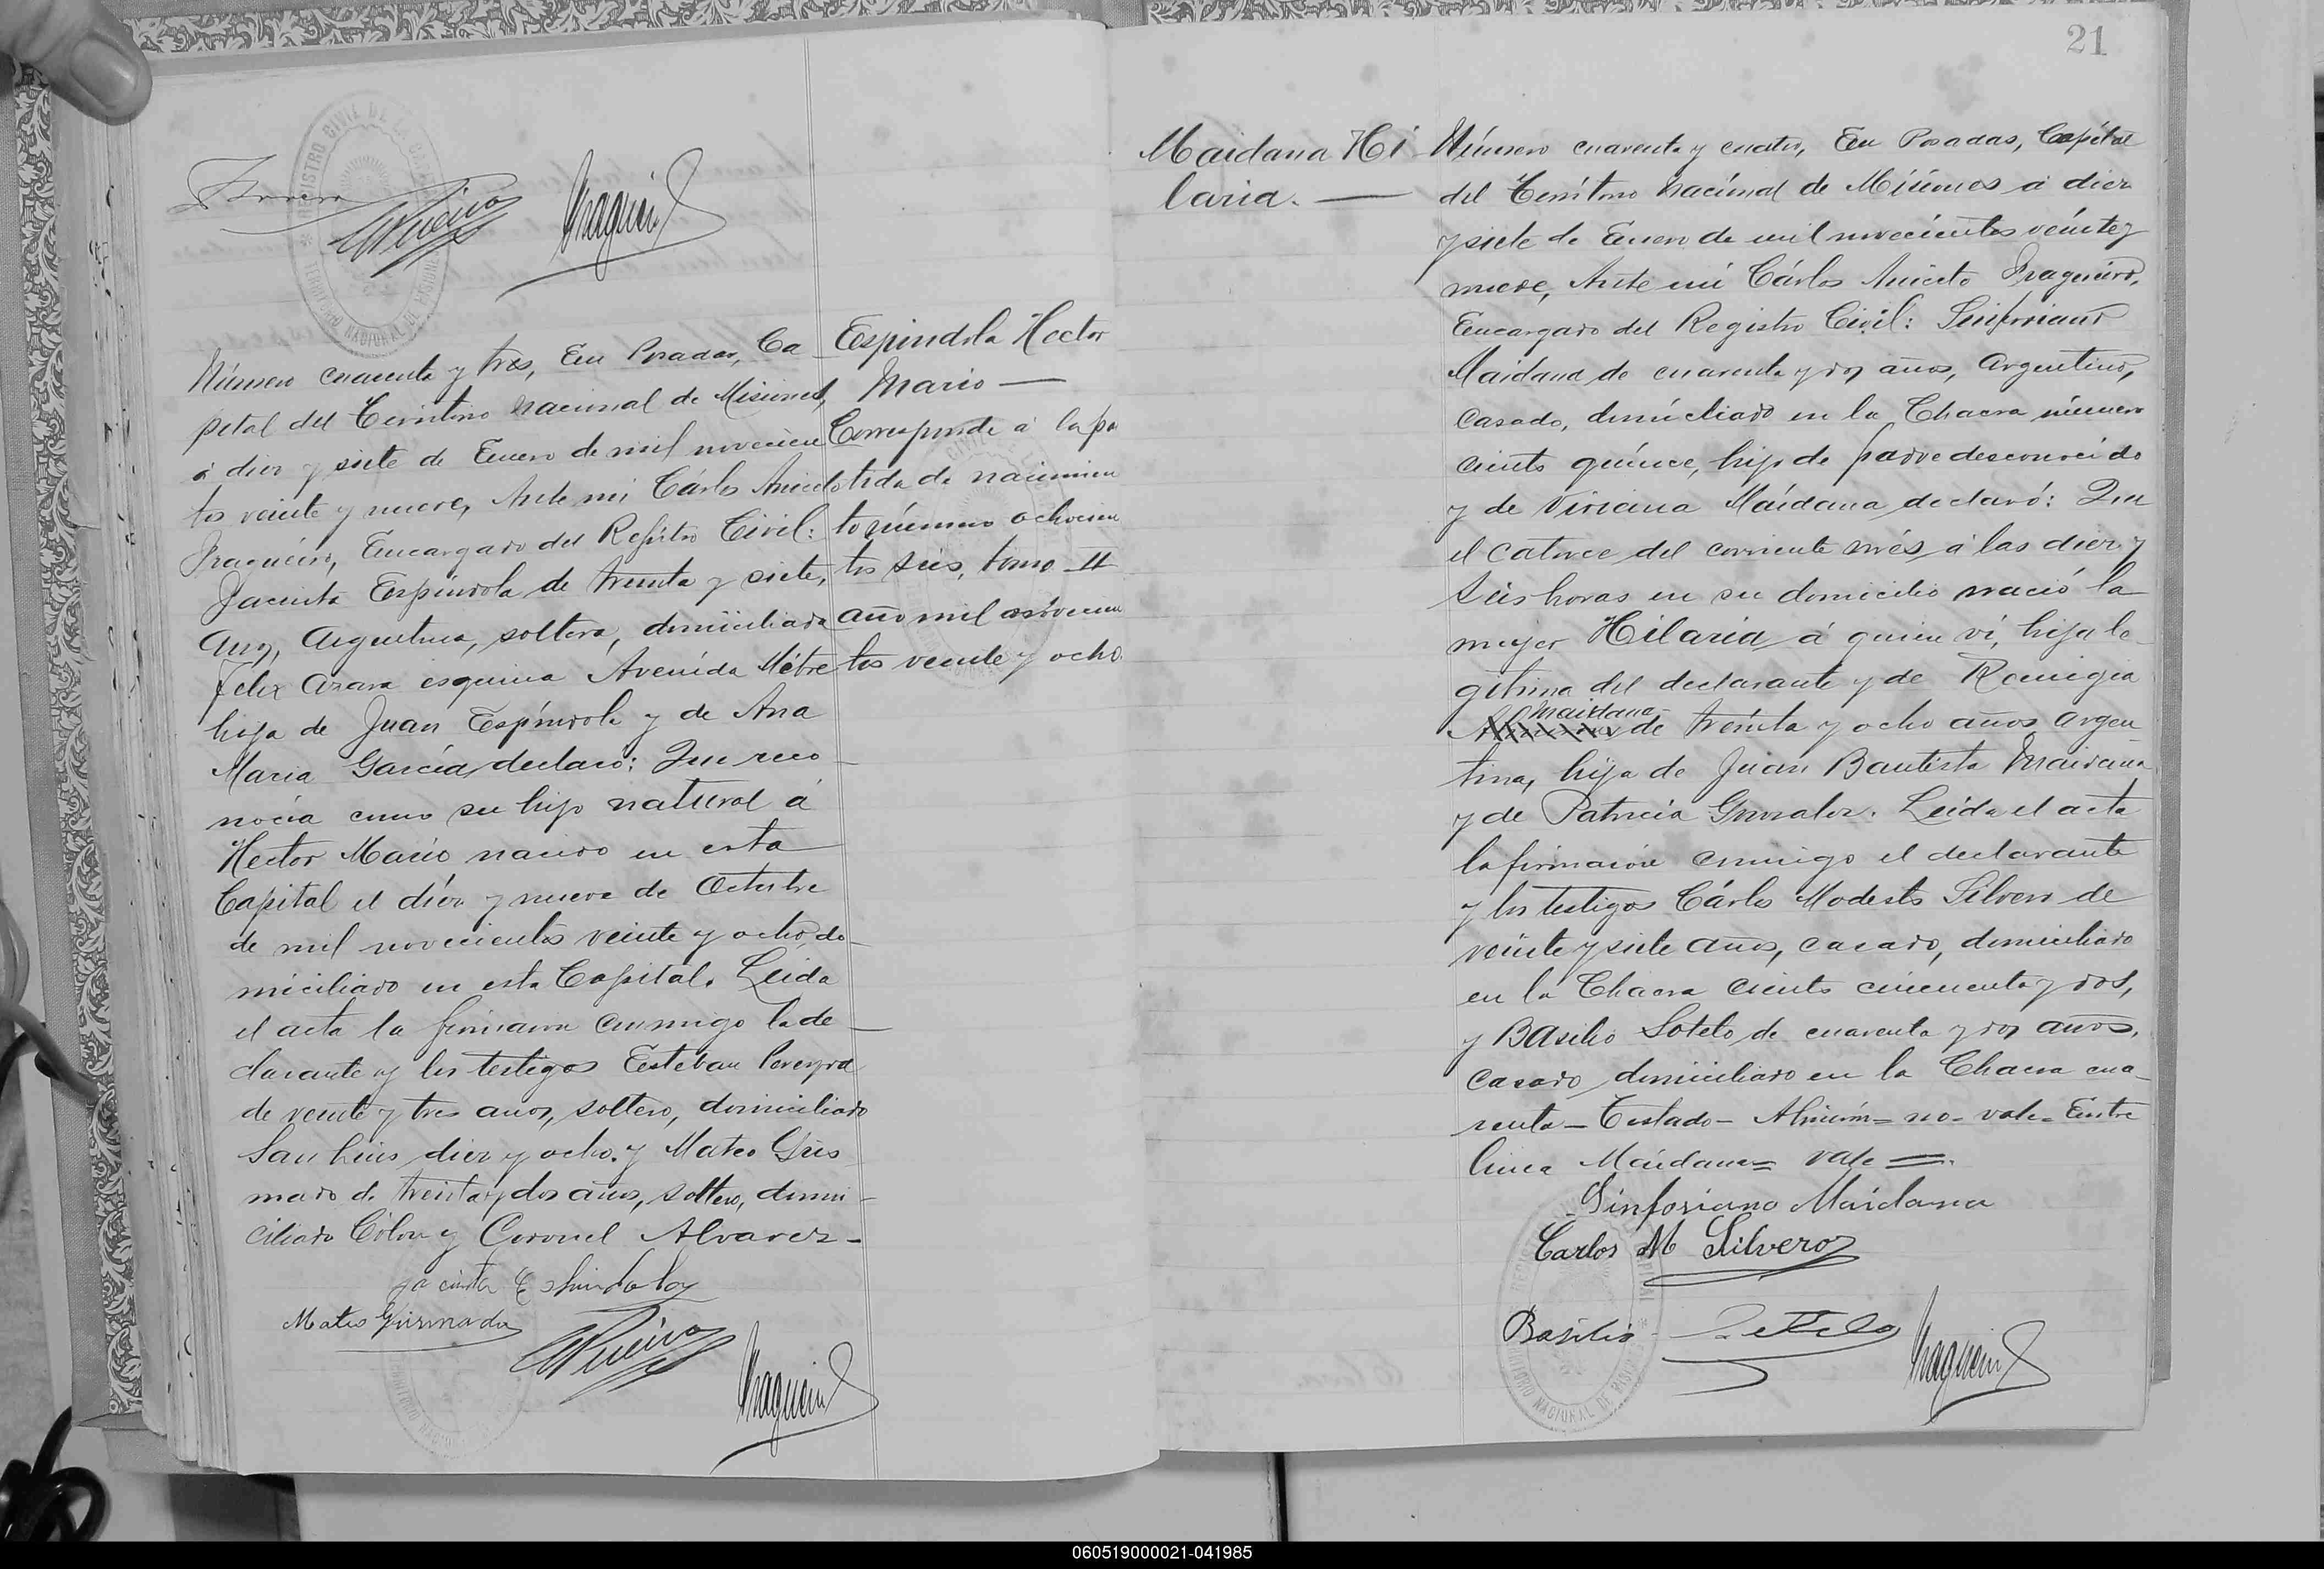 Número cuarenta y tres, En Posadas, Ca
pital del Territorio Nacional de Misiones,
á diez y siete de Enero de mil novecien
tos veinte y nueve, Ante mi Cárlos Aniceto
Fragueiro, Encargado del Registro Civil:
Jacinta Espíndola de treinta y siete,
años, Argentina, soltera, domiciliada
Felix Azara esquina Avenida Mitre
hija de Juan Espíndola y de Ana
Maria García, declaró: Que reco
nocía como su hijo natural á
Hector Mario nacido en esta
Capital el diez y nueve de Octubre
de mil novecientos veinte y ocho, do-
miciliado en esta Capital. Leida
el acta la firmaron conmigo la de-
clarante y los testigos Esteban Pereyra
de veinte y tres años, soltero, domiciliado
San Luis diez y ocho. y Mateo Gris
mado de treinta y dos años, soltero, domi-
ciliado Colon y Coronel Alvarez-
Jacinta Espindola
Mateo Grismado
Espindola Hector
Mario —
Corresponde á la pa
tida de nacimien
to número ochocien
tos seis, tomo II
año mil novecien
tos veinte y ocho.
21
Maidana Hi
laria. —
Número cuarenta y cuatro, En Posadas, Capital
del Territorio Nacional de Misiones á diez
y siete de Enero de mil novecientos veinte y
nueve, Ante mi Cárlos Aniceto Fragueiro,
Encargado del Registro Civil: Sinforiano
Maidana de cuarenta y dos años, Argentino,
casado, domiciliado en la Chacra número
ciento quince, hijo de padre desconocido
y de Viviana Maidana declaró: Que
el catorce del corriente mes á las diez y
seis horas en su domicilio nació la
mujer Hilaria á quien ví, hija le-
gitima del declarante y de Remigia
Maidana
de treinta y ocho años Argen
tina, hija de Juan Bautista Maidana
y de Patricia Gonzalez. Leida el acta
la firmaron conmigo el declarante
y los testigos Cárlos Modesto Silvero de
veinte y siete años, casado, domiciliado
en la Chacra ciento cincuenta y dos,
y Basilio Sotelo de cuarenta y dos años,
casado domiciliado en la Chacra cua-
renta - Testado - Almirón = no = vale = Entre
linea Maidana = vale =.
Sinforiano Maidana
Carlos M Silvero
Basilio Sotelo
060519000021-041985